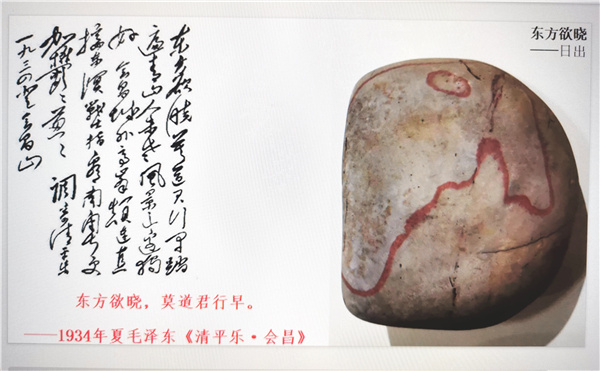 东方欲晓 莫道君行早 踏
遍青山人未老 风景这边独
好 会昌城外高峰 颠连直
接东溟 战士指看南粤 更
加郁〻葱〻 调寄清平乐
一九三四 登会昌山
东方欲晓，莫道君行早。
——1934年夏毛泽东《清平乐·会昌》
东方欲晓
——日出